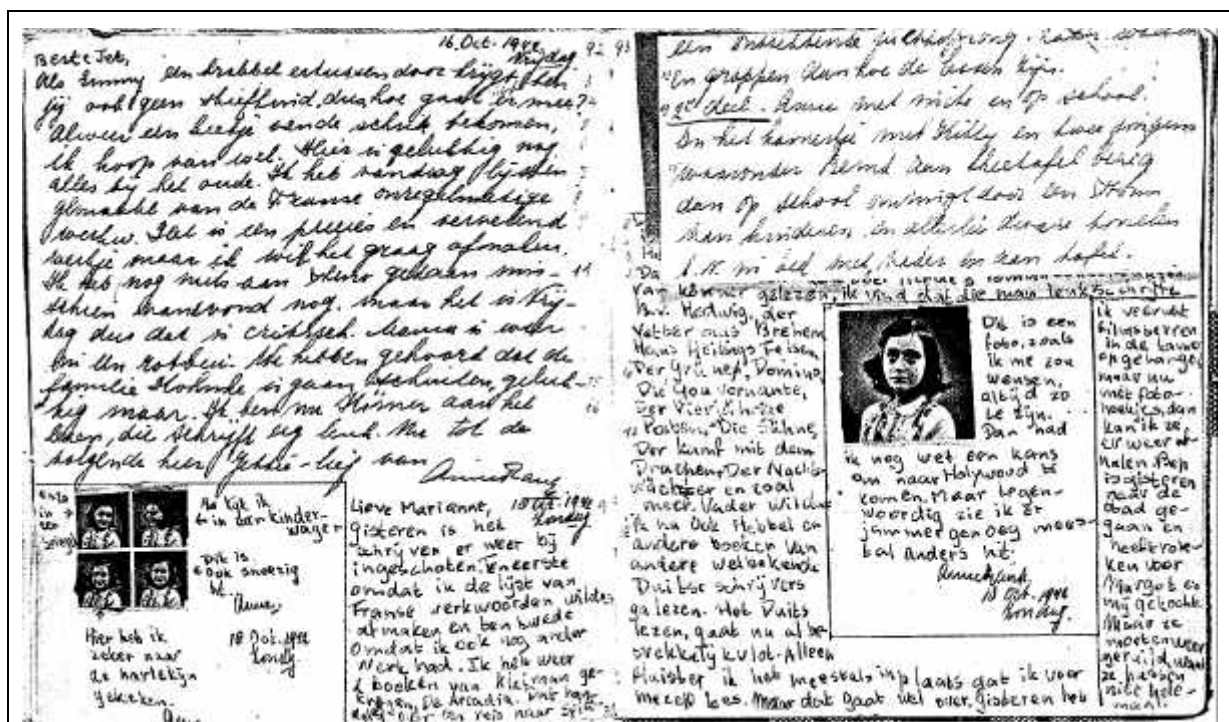 16 Oct. 1942
Vrijdag
92 93
Beste Jet,
Als Emmy een krabbel ertussen door krijgt, ben
jij ook geen stiefkind, dus hoe gaat er mee?
Alweer een beetje van de schrik bekomen,
ik hoop van wel. Hier is gelukkig nog
alles bij het oude. Ik heb vandaag lijsten
gemaakt van de Franse onregelmatige
werkw. Dat is een precies en vervelend
werkje maar ik wil het graag afmaken.
Ik heb nog niets aan steno gedaan mis-
schien vanavond nog. maar het is Vrij-
dag dus dat is critisch. Mama is weer
We hebben gehoord dat de
familie is gaan scheiden, geluk-
kig maar. Ik ben nu Körner aan het
lezen, die schrijft erg leuk. Nu tot de
volgende keer van
Anne Frank
in
een
spiegel
Nu kijk ik
in der Kinder-
wager
Dit is
ook snoezig
Anne
Hier heb ik
zeker naar
de harlekijn
gekeken.
Anne
18 Oct. 1942
Zondag
Lieve Marianne, 18 Oct. 1942
Zondag
gisteren is het
schrijven er weer bij
ingeschoten. Ten eerste
omdat ik de lijst van
Franse werkwoorden wilde
afmaken en ten twede
omdat ik ook nog ander
werk had. Ik heb weer
2 boeken van Kleiman ge-
kregen, De Arcadia. Dat han-
delt over een reis naar
een
En grappen dan hoe de
2e deel. Anne met en op school.
In het kamertje met Kitty en twee jongens
waaronder Bernd aan theetafel bezig
dan op school omringd door een stoom
van kinderen en allerlei dwaze tonelen
b.v. in bed met vader en aan tafel.
van körner gelezen, ik vind dat die man leuk schrijft
B.v. Hedwig, der
Vetter aus Brehem
Hans Heilings Felsen
Der Grüne, Domino,
Die Gouvernante,
Der Vierjährige
Posten, Die Sühne,
Der Kamf mit dem
Drachen, Der Nacht-
wächter en zoal
meer. Vader wil dat
ik nu ook Hebbel en
andere boeken van
andere welbekende
Duitse schrijvers
ga lezen. Het Duits
lezen, gaat nu al be-
trekkelijk vlot. Alleen
fluister ik het meestal inplaats dat ik voor
mezelf lees. Maar dat gaat wel over, gisteren heb
Dit is een
foto, zoals
ik me zou
wensen,
altijd zo
te zijn.
Dan had
ik nog wel een kans
om naar Holywood te
komen. Maar tegen-
woordig zie ik er
jammer genoeg mees-
tal anders uit.
Anne Frank.
18 Oct. 1942
Zondag.
ik veerukt
filmsterren
in de kamer
opgehangen
maar nu
met foto-
hoekjes, dan
kan ik ze
er weer af-
halen. Bep
is gisteren
naar de
stad ge-
gaan en
heeft rok-
ken voor
Margot en
mij gekocht.
Maar ze
moeten weer
geruild, want
ze passen
niet hele-
maal.